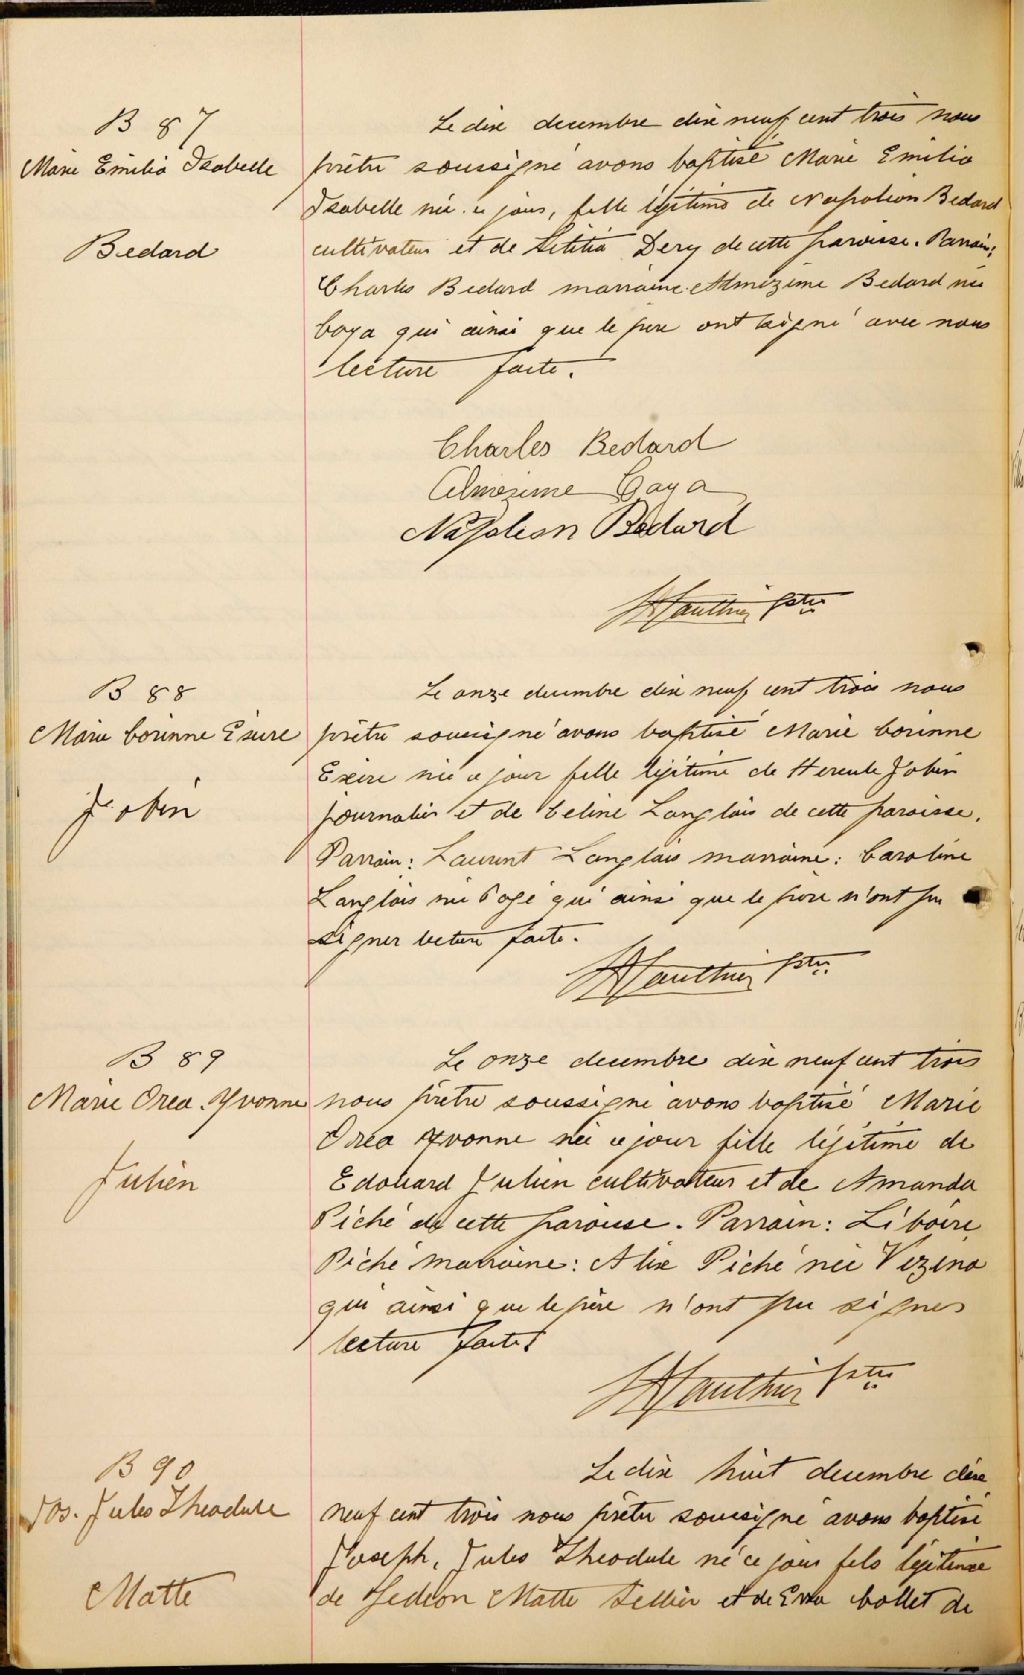 B 87
Marie Emilia Isabelle
Bedard
Le dix decembre dix neuf cent trois nous
prêtre soussigné avons baptisé Marie Emilia
Isabelle née ce jour, fille légitime de Napoléon Bedard
cultivateur et de Létitia Dery de cette paroisse. Parrain:
Charles Bedard marraine Almézime Bedard née
Goya qui ainsi que le père ont signé avec nous
lecture faite.
Charles Bedard
Almezime Goya
Napoleon Bedard
Gauthier ptre
B 88
Marie Corinne Exire
Jobin
Le onze decembre dix neuf cent trois nous
prêtre soussigné avons baptisé Marie Corinne
Exire née ce jour fille légitime de Hercule Jobin
journalier et de Celine Langlois de cette paroisse.
Parrain: Laurent Langlais marraine: Caroline
Langlois née Pagé qui ainsi que le père n'ont pu
signer lecture faite.
Gauthier ptre
B 89
Marie Orea. Yvonne
Julien
Le onze decembre dix neuf cent trois
nous prêtre soussigné avons baptisé Marie
Orea Yvonne née ce jour fille légitime de
Edouard Julien cultivateur et de Amanda
Piché de cette paroisse. Parrain: Liboire
Piché marraine: Alix Piché née Vezina
qui ainsi que le père n'ont pu signer
lecture faite.
Gauthier ptre
B 90
Jos. Jules Theodule
Matte
Le dix huit decembre dix
neuf cent trois nous prêtre soussigné avons baptisé
Joseph, Jules Theodule né ce jour fils légitime
de Gedeon Matte sellier et de Eva Collet de